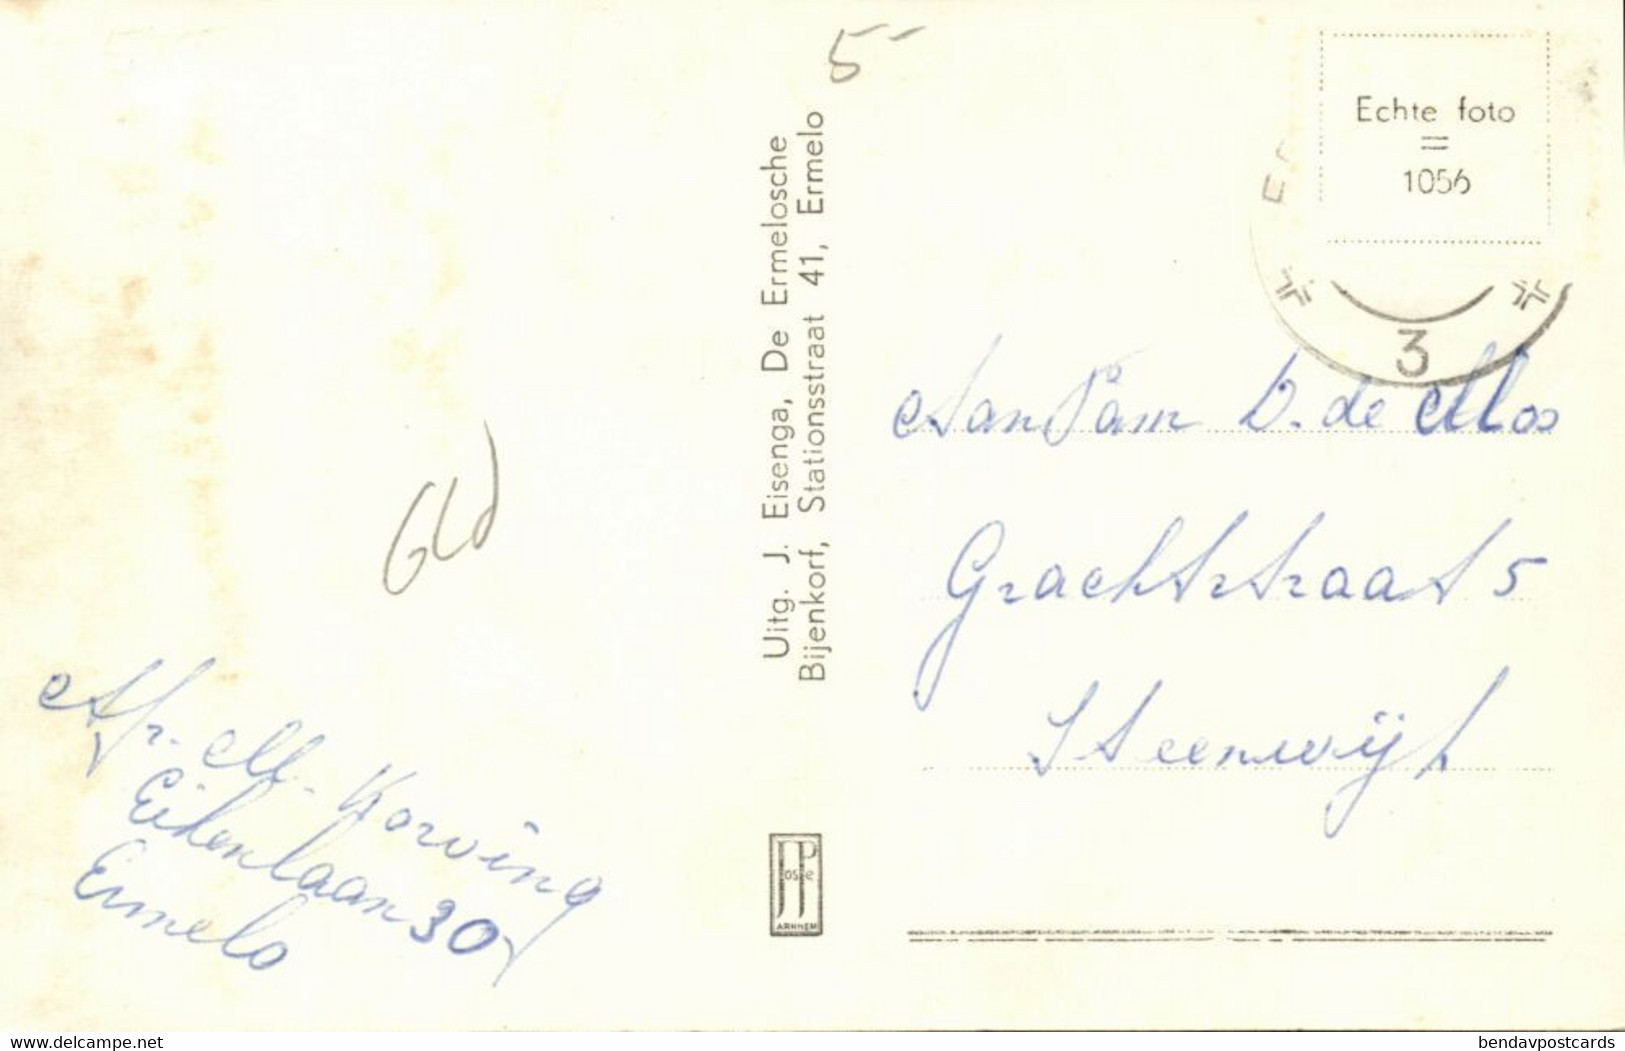 5-
Echte foto
=
1056
3
Uitg. J. Eisenga, De Ermelosche
Bijenkorf, Stationsstraat 41, Ermelo
Gld
Aan Fam D. de Mos
Grachtstraat 5
Steenwijk
Afz. M. Korving
Eikenlaan 30
Ermelo
JosPe
ARNHEM
https://www.delcampe.net
bendavpostcards